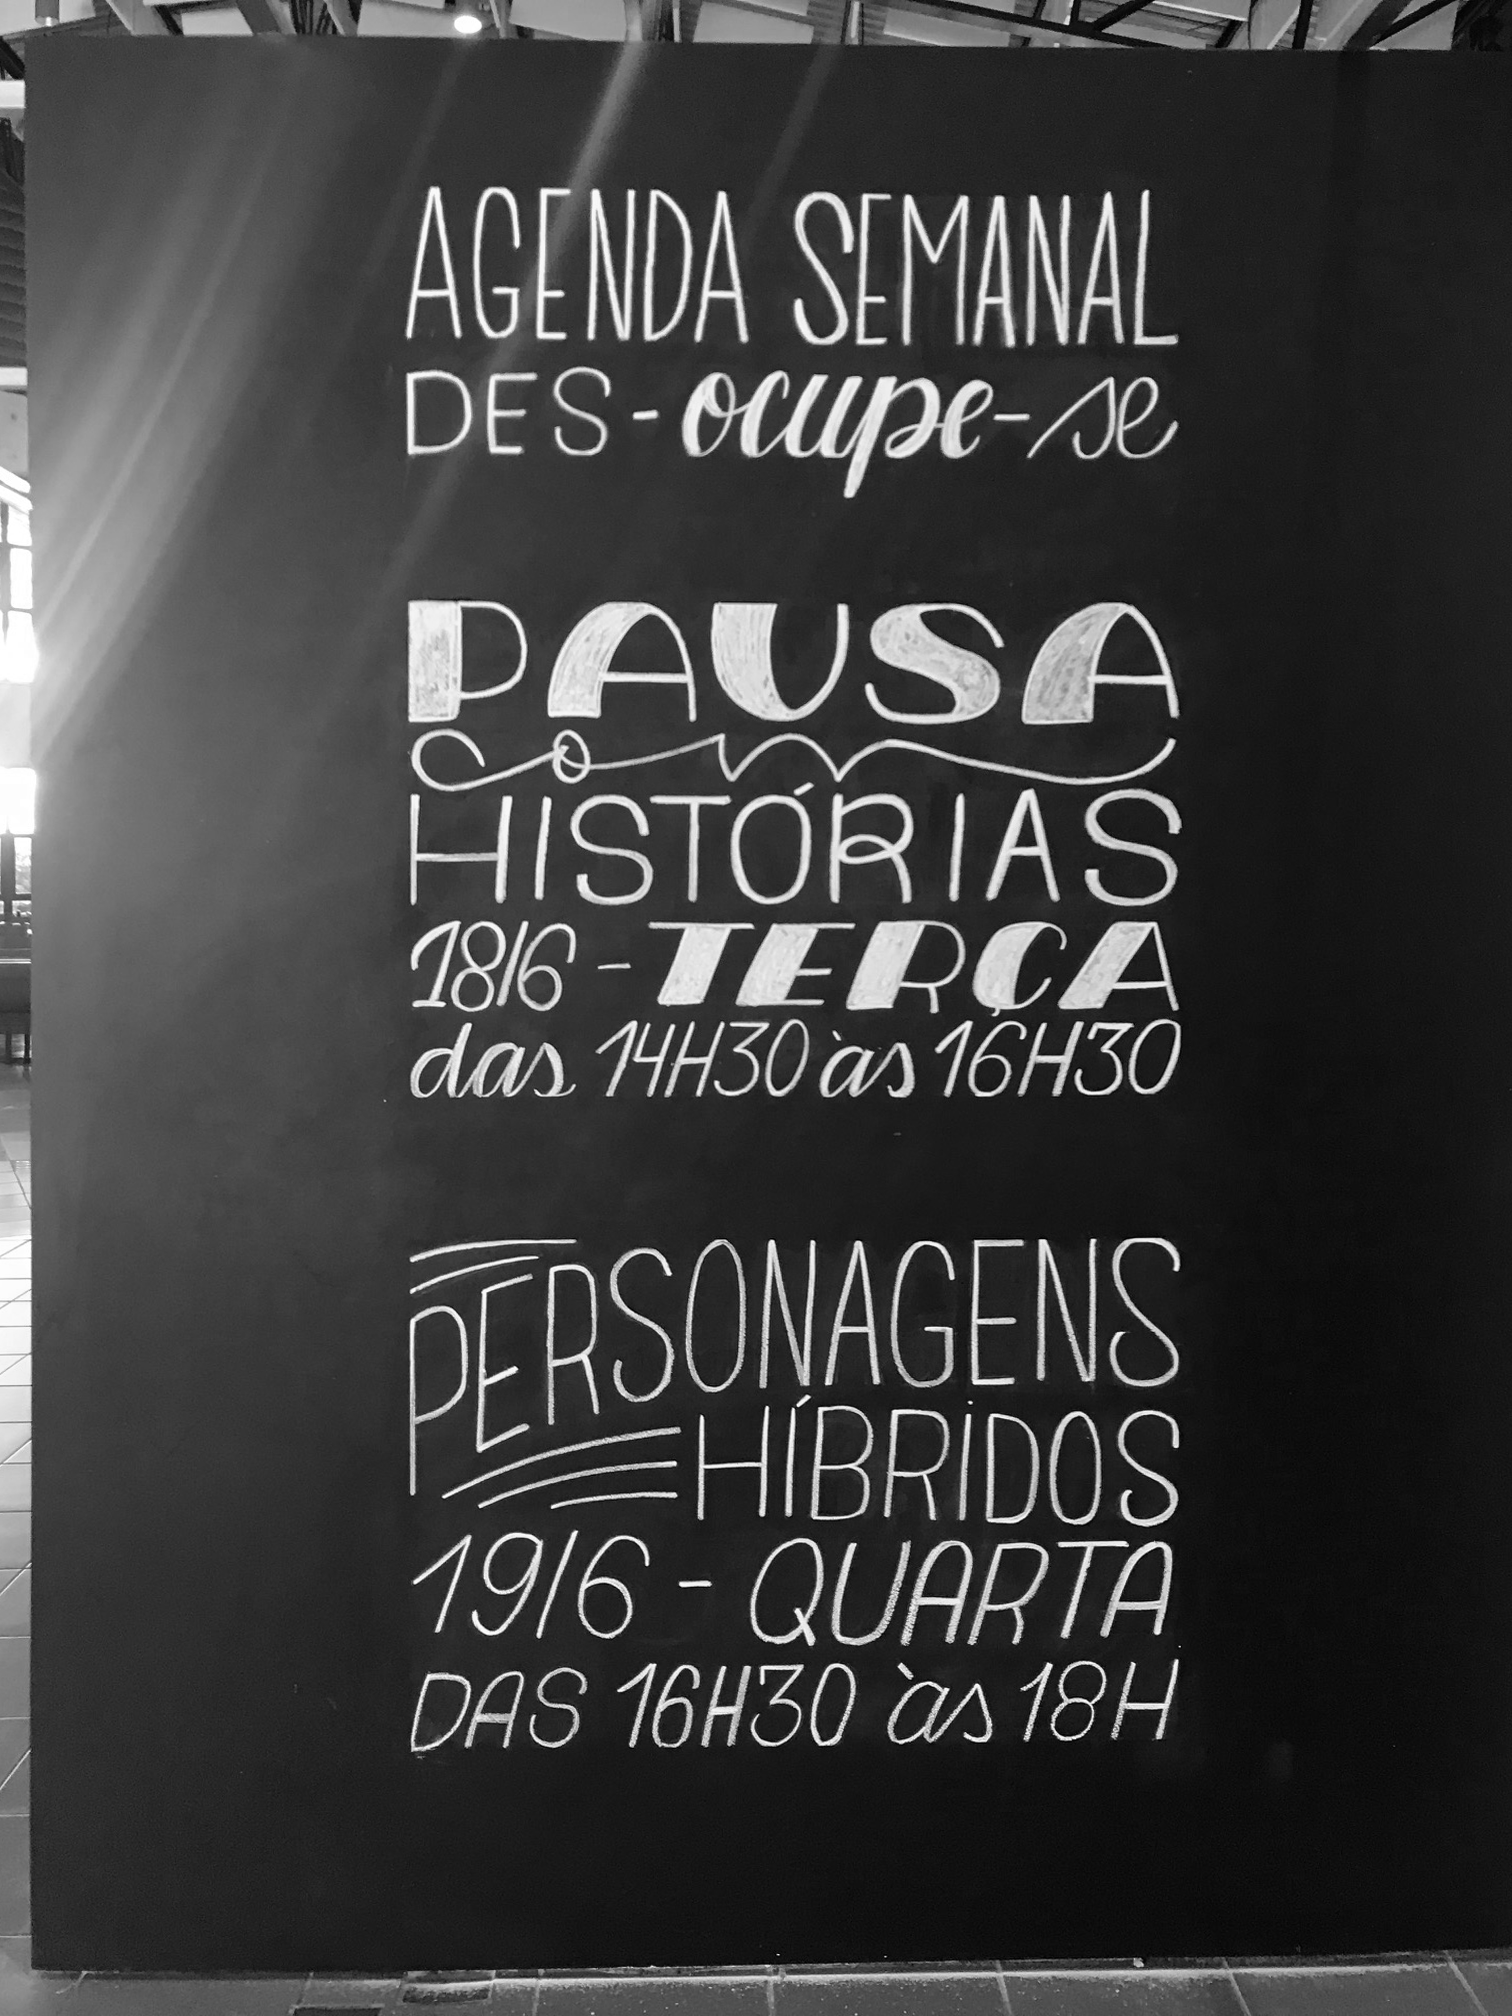 AGENDA SEMANAL
DES-ocupe-se
PAUSA
com
HISTÓRIAS
18/6 - TERÇA
das 14H30 às 16H30
PERSONAGENS
HÍBRIDOS
19/6 - QUARTA
DAS 16H30 às 18H